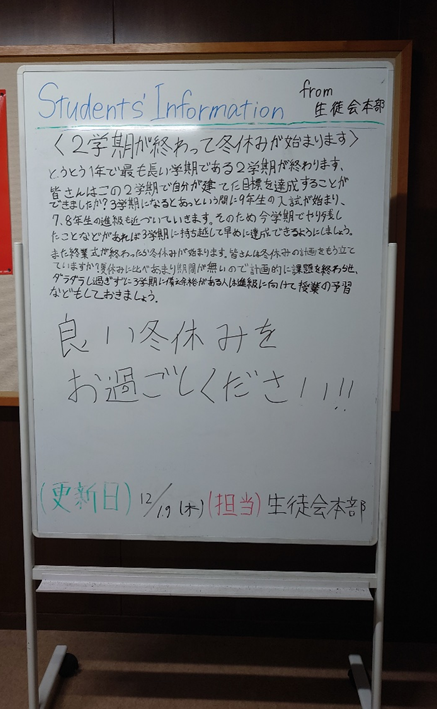 Students' Information
from
生徒会本部
〈２学期が終わって冬休みが始まります〉
とうとう1年で最も長い学期である2学期が終わります、
皆さんはこの2学期で自分が建てた目標を達成することが
できましたか?3学期になるとあっという間に9年生の入試が始まり、
7、8年生の進級も近づいていきます。そのため今学期でやり残し
たことなどがあれば3学期に持ち越して早めに達成できるようにしましょう。
また終業式が終わったら冬休みが始まります。皆さんは冬休みの計画をもう立て
ていますか?夏休みに比べあまり期間が無いので計画的に課題を終わらせ、
ダラダラし過ぎずに3学期に備え余裕がある人は進級に向けて授業の予習
などもしておきましょう。
良い冬休みを
お過ごしください!!
(更新日) 12/19(木) (担当) 生徒会本部